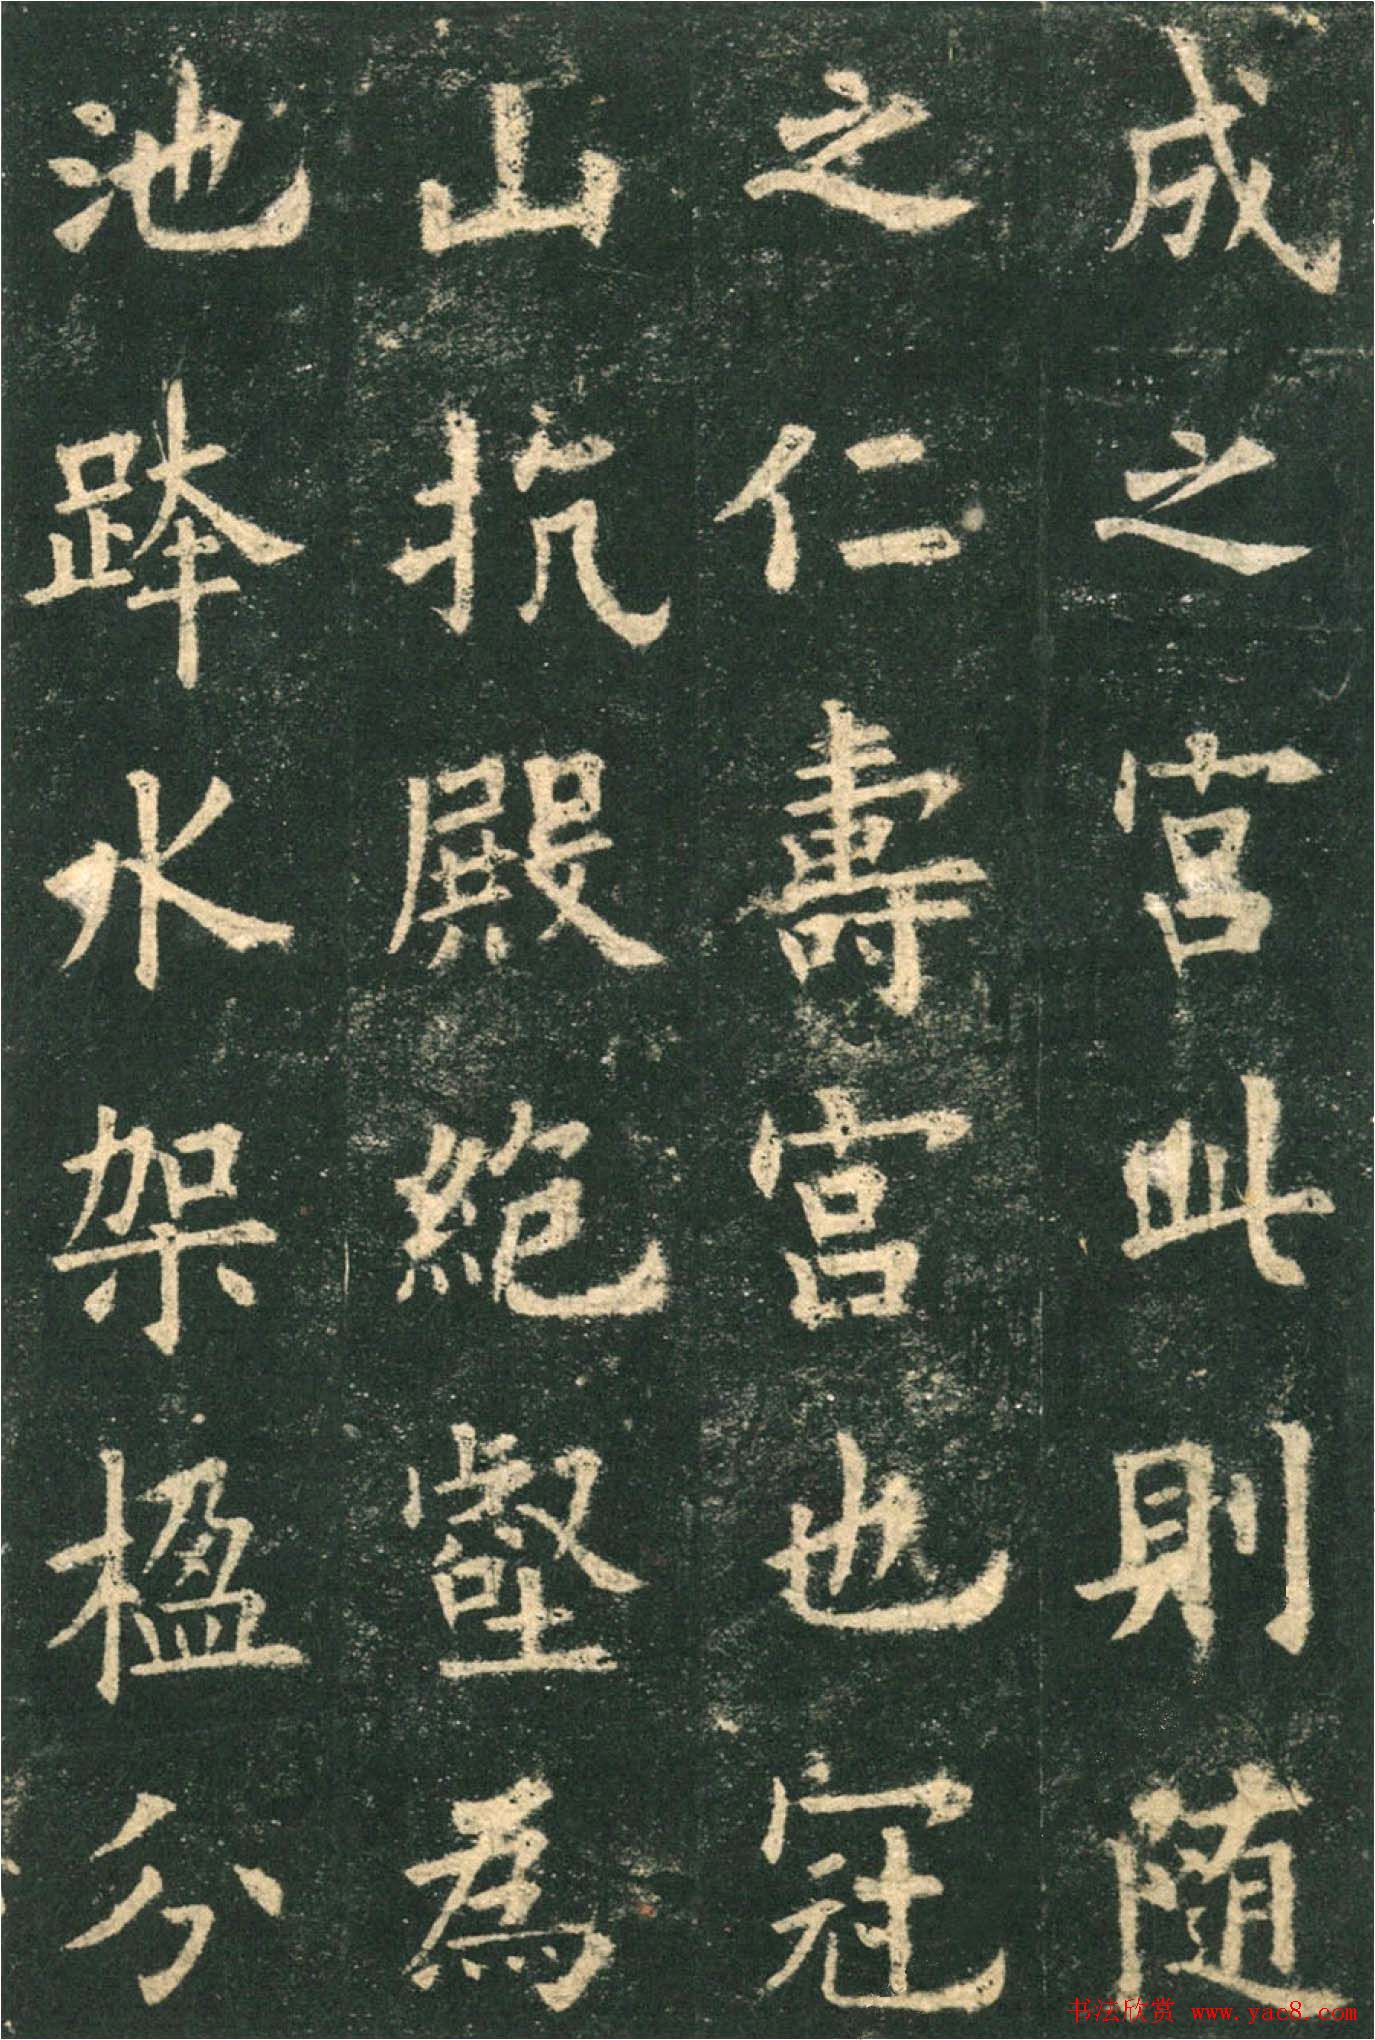 成之宮此則随
之仁壽宮也冠
山抗殿絕壑為
池跨水架楹分
书法欣赏 www.yac8.com